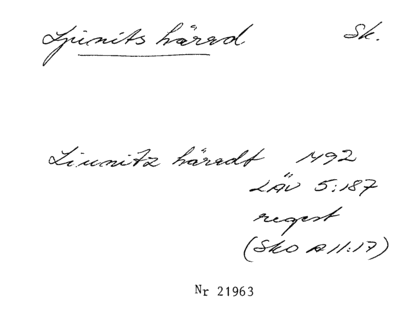 Ljunits härad Sk.
Liunitz häredt 1492
LÄU 5:187
regest
(Sko A 11:17)
Nr 21963